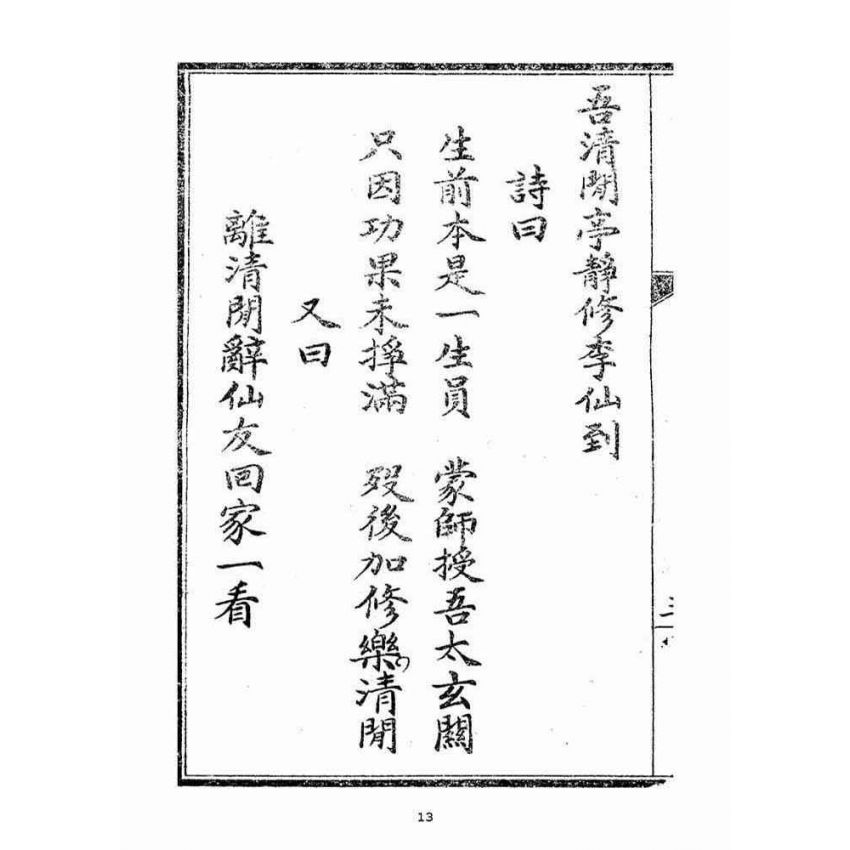 吾清閒亭靜修李仙到
詩曰
生前本是一生員　蒙師授吾太玄關
只因功果未掙滿　歿後加修樂清閒
又曰
離清閒辭仙友回家一看
13